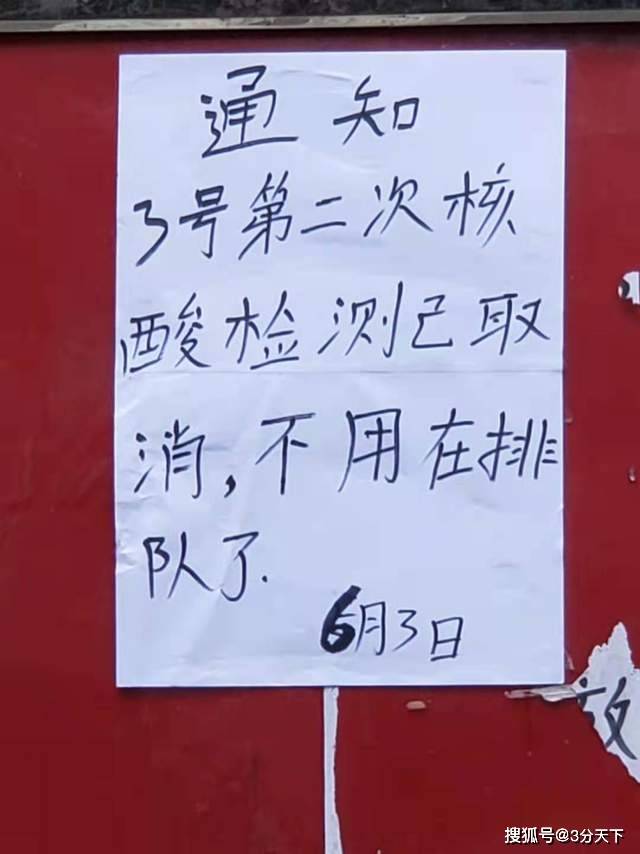 通知
3号第二次核
酸检测已取
消,不用在排
队了.
6月3日
放
搜狐号@3分天下